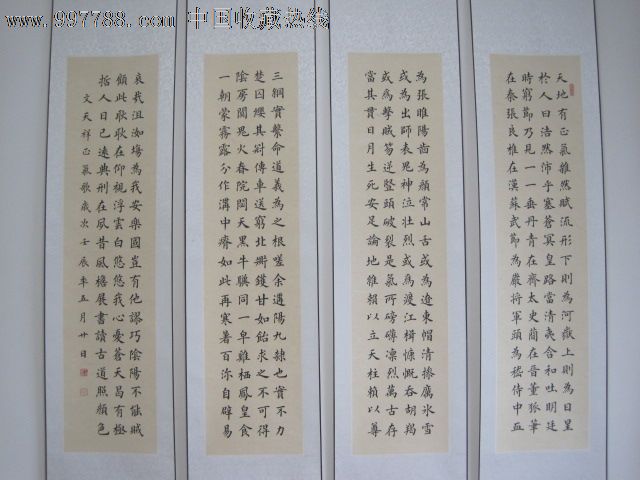 www.997788.com 中国收藏热线
天地有正氣雜然賦流形下則為河嶽上則為日星
於人曰浩然沛乎塞蒼冥皇路當清夷含和吐明廷
時窮節乃見一一垂丹青在齊太史簡在晉董狐筆
在秦張良椎在漢蘇武節為嚴將軍頭為嵇侍中血
為張睢陽齒為顏常山舌或為遼東帽清操厲冰雪
或為出師表鬼神泣壯烈或為渡江楫慷慨吞胡羯
或為擊賊笏逆豎頭破裂是氣所磅礴凜烈萬古存
當其貫日月生死安足論地維賴以立天柱賴以尊
三綱實繫命道義為之根嗟余遘陽九隸也實不力
楚囚纓其冠傳車送窮北鼎鑊甘如飴求之不可得
陰房闃鬼火春院閟天黑牛驥同一皁雞栖鳳皇食
一朝蒙霧露分作溝中瘠如此再寒暑百沴自辟易
哀我沮洳場為我安樂國豈有他謬巧陰陽不能賊
顧此耿耿在仰視浮雲白悠悠我心憂蒼天曷有極
哲人日已遠典刑在夙昔風檐展書讀古道照顏色
文天祥正氣歌歲次壬辰年五月廿日